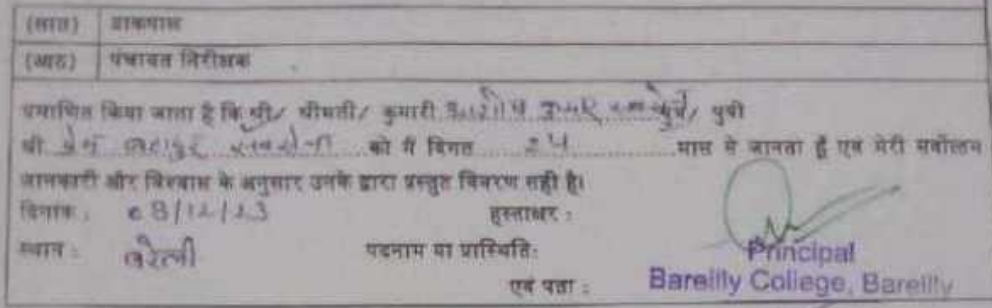 (सात) डाकपाल
(आठ) पंचायत निरीक्षक
प्रमाणित किया जाता है कि श्री/ श्रीमती/ कुमारी कुमार पुत्र/ पुत्री
श्री प्रेम बहादुर सक्सेना को मैं विगत 24 मास से जानता हूँ एवं मेरी सर्वोत्तम
जानकारी और विश्वास के अनुसार उनके द्वारा प्रस्तुत विवरण सही है।
दिनांक : 08/12/23 हस्ताक्षर :
स्थान : बरेली पदनाम या प्रास्थिति:
Principal
एवं पता : Bareilly College, Bareilly